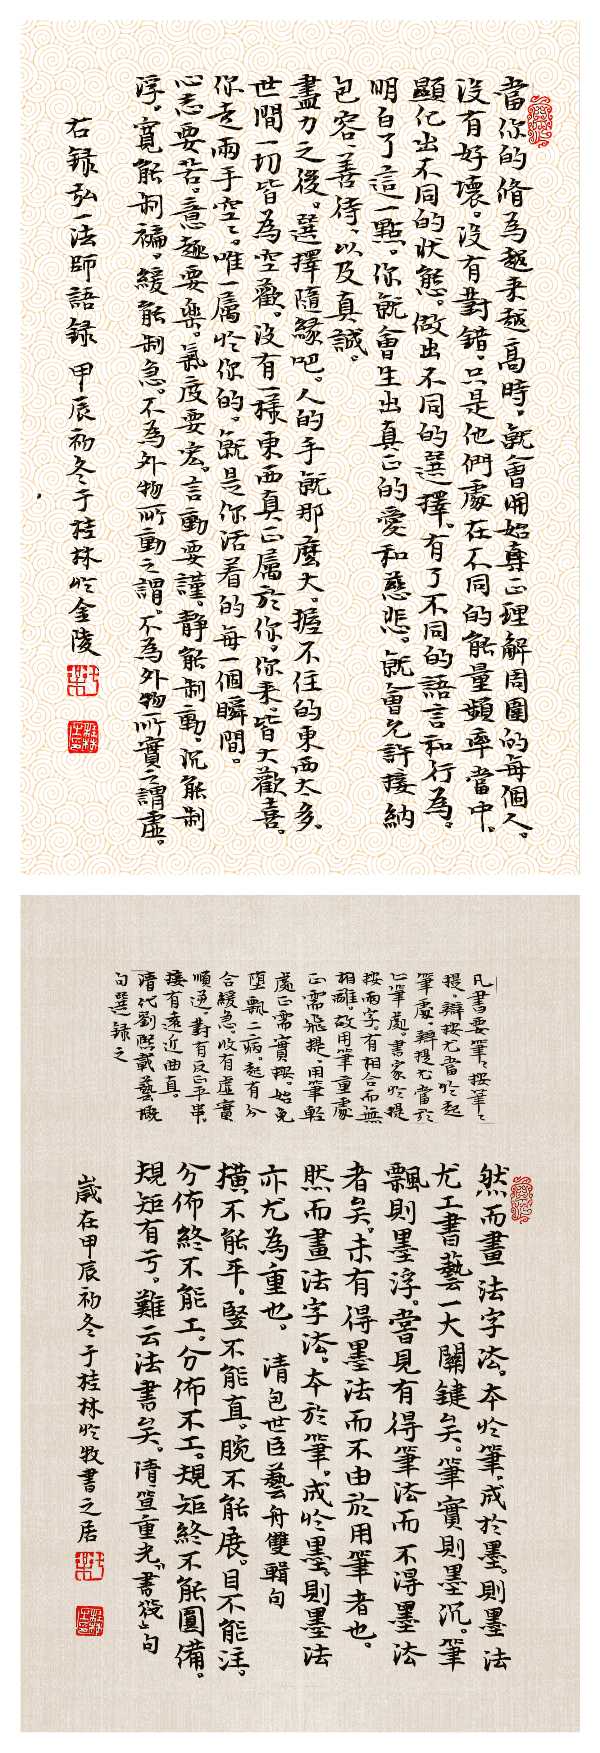 當你的修為越來越高時，就會開始真正理解周圍的每個人。
沒有好壞。沒有對錯。只是他們處在不同的能量頻率當中。
顯化出不同的狀態。做出不同的選擇。有了不同的語言和行為。
明白了這一點。你就會生出真正的愛和慈悲。就會允許接納
包容、善待、以及真誠。
盡力之後。選擇隨緣吧。人的手就那麼大。握不住的東西太多。
世間一切皆為空歡。沒有一樣東西真正屬於你。你來皆大歡喜。
你走兩手空空。唯一屬於你的。就是你活着的每一個瞬間。
心志要苦。意趣要樂。氣度要宏。言動要謹。靜能制動。沉能制
浮。寬能制褊。緩能制急。不為外物所動之謂。不為外物所實之謂虛。
右録弘一法師語録 甲辰初冬于桂林於金陵
凡書要筆筆按筆筆
提。辯按尤當於起
筆處。辯提尤當於
止筆處。書家於提
按兩字。有相合而無
相離。故用筆重處
正需飛提。用筆輕
處正需實按。始免
墮飄二病。起有分
合緩急。收有虛實
順逆。對有反正平串。
接有遠近曲直。
清代劉熙載藝概
句選録之
然而畫法字法。本於筆。成於墨。則墨法
尤工書藝一大關鍵矣。筆實則墨沉。筆
飄則墨浮。嘗見有得筆法而不得墨法
者矣。未有得墨法而不由於用筆者也。
然而畫法字法。本於筆。成於墨。則墨法
亦尤為重也。 清包世臣藝舟雙輯句
橫不能平。豎不能直。腕不能展。目不能注。
分佈終不能工。分佈不工。規矩終不能圓備。
規矩有亏。難云法書矣。隋笪重光“書筏”句
歲在甲辰初冬于桂林於牧書之居